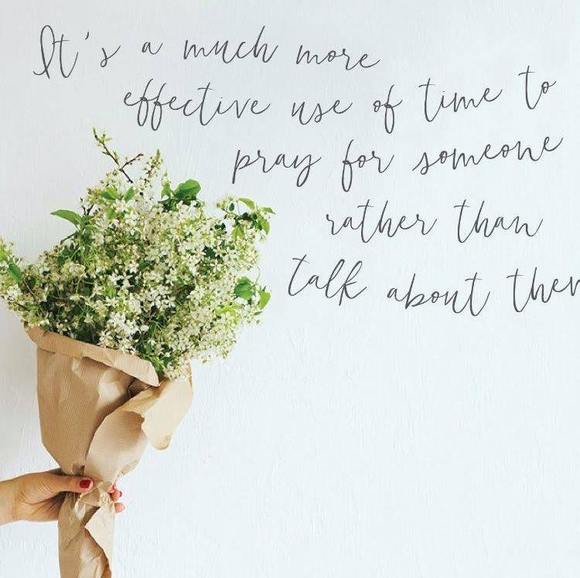 It's a much more
effective use of time to
pray for someone
rather than
talk about them